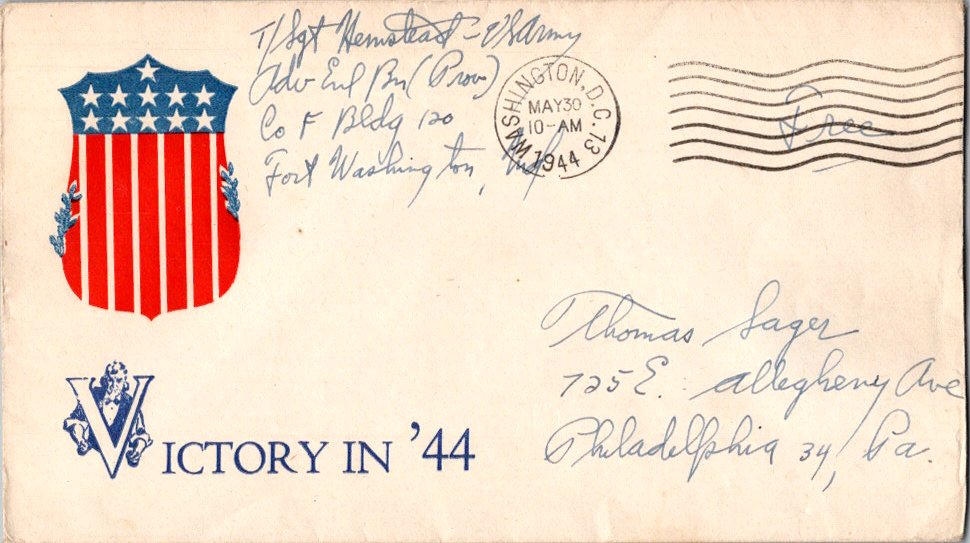 T/Sgt Hemstead - US Army
Adv Enl Bn (Prov)
Co F Bldg 120
Fort Washington, Md
WASHINGTON, D.C. 13
MAY 30
10-AM
1944
Free
Thomas Sager
725 E. Allegheny Ave
Philadelphia 34, Pa.
VICTORY IN '44